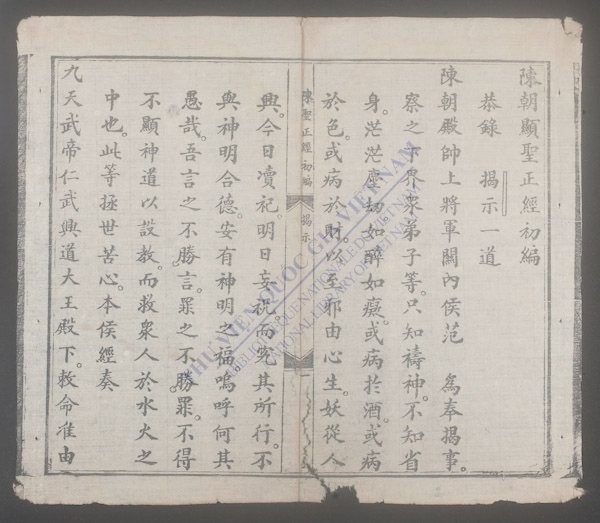 陳朝顯聖正經初編
恭錄 揭示一道
陳朝殿帥上將軍關內侯范 爲奉揭事。
察之下界衆弟子等。只知禱神。不知省
身。茫茫塵劫如醉如癡。或病於酒。或病
於色。或病於財。以至邪由心生。妖從人
陳聖正經初編 揭示 一
興。今日凟祀。明日妄祝。而究其所行。不
與神明合德。安有神明之福。嗚呼何其
愚哉。吾言之不勝言。罪之不勝罪。不得
不顯神道以設教。而救衆人於水火之
中也。此等拯世苦心。本侯經奏
九天武帝仁武興道大王殿下。敕命准由
THƯ VIỆN QUỐC GIA VIỆT NAM
BIBLIOTHEQUE NATIONALE DU VIETNAM
NATIONAL LIBRARY OF VIETNAM